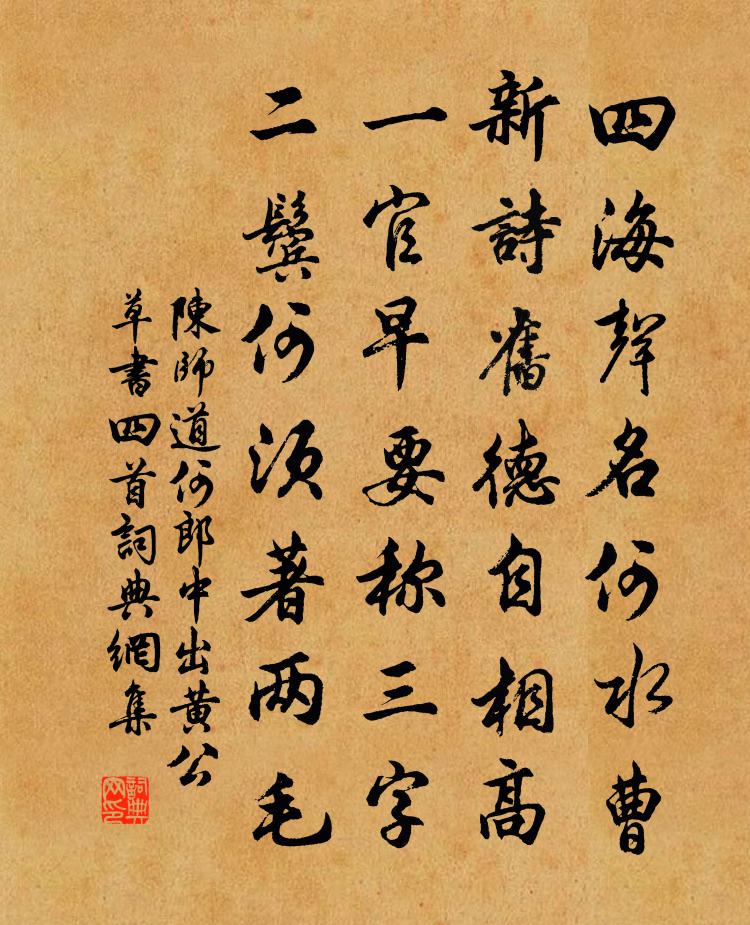 四海聲名何水曹
新詩舊德自相高
一官早要称三字
二鬓何須著两毛
陳師道何郎中出黄公
草書四首詞典網集
詞典网印